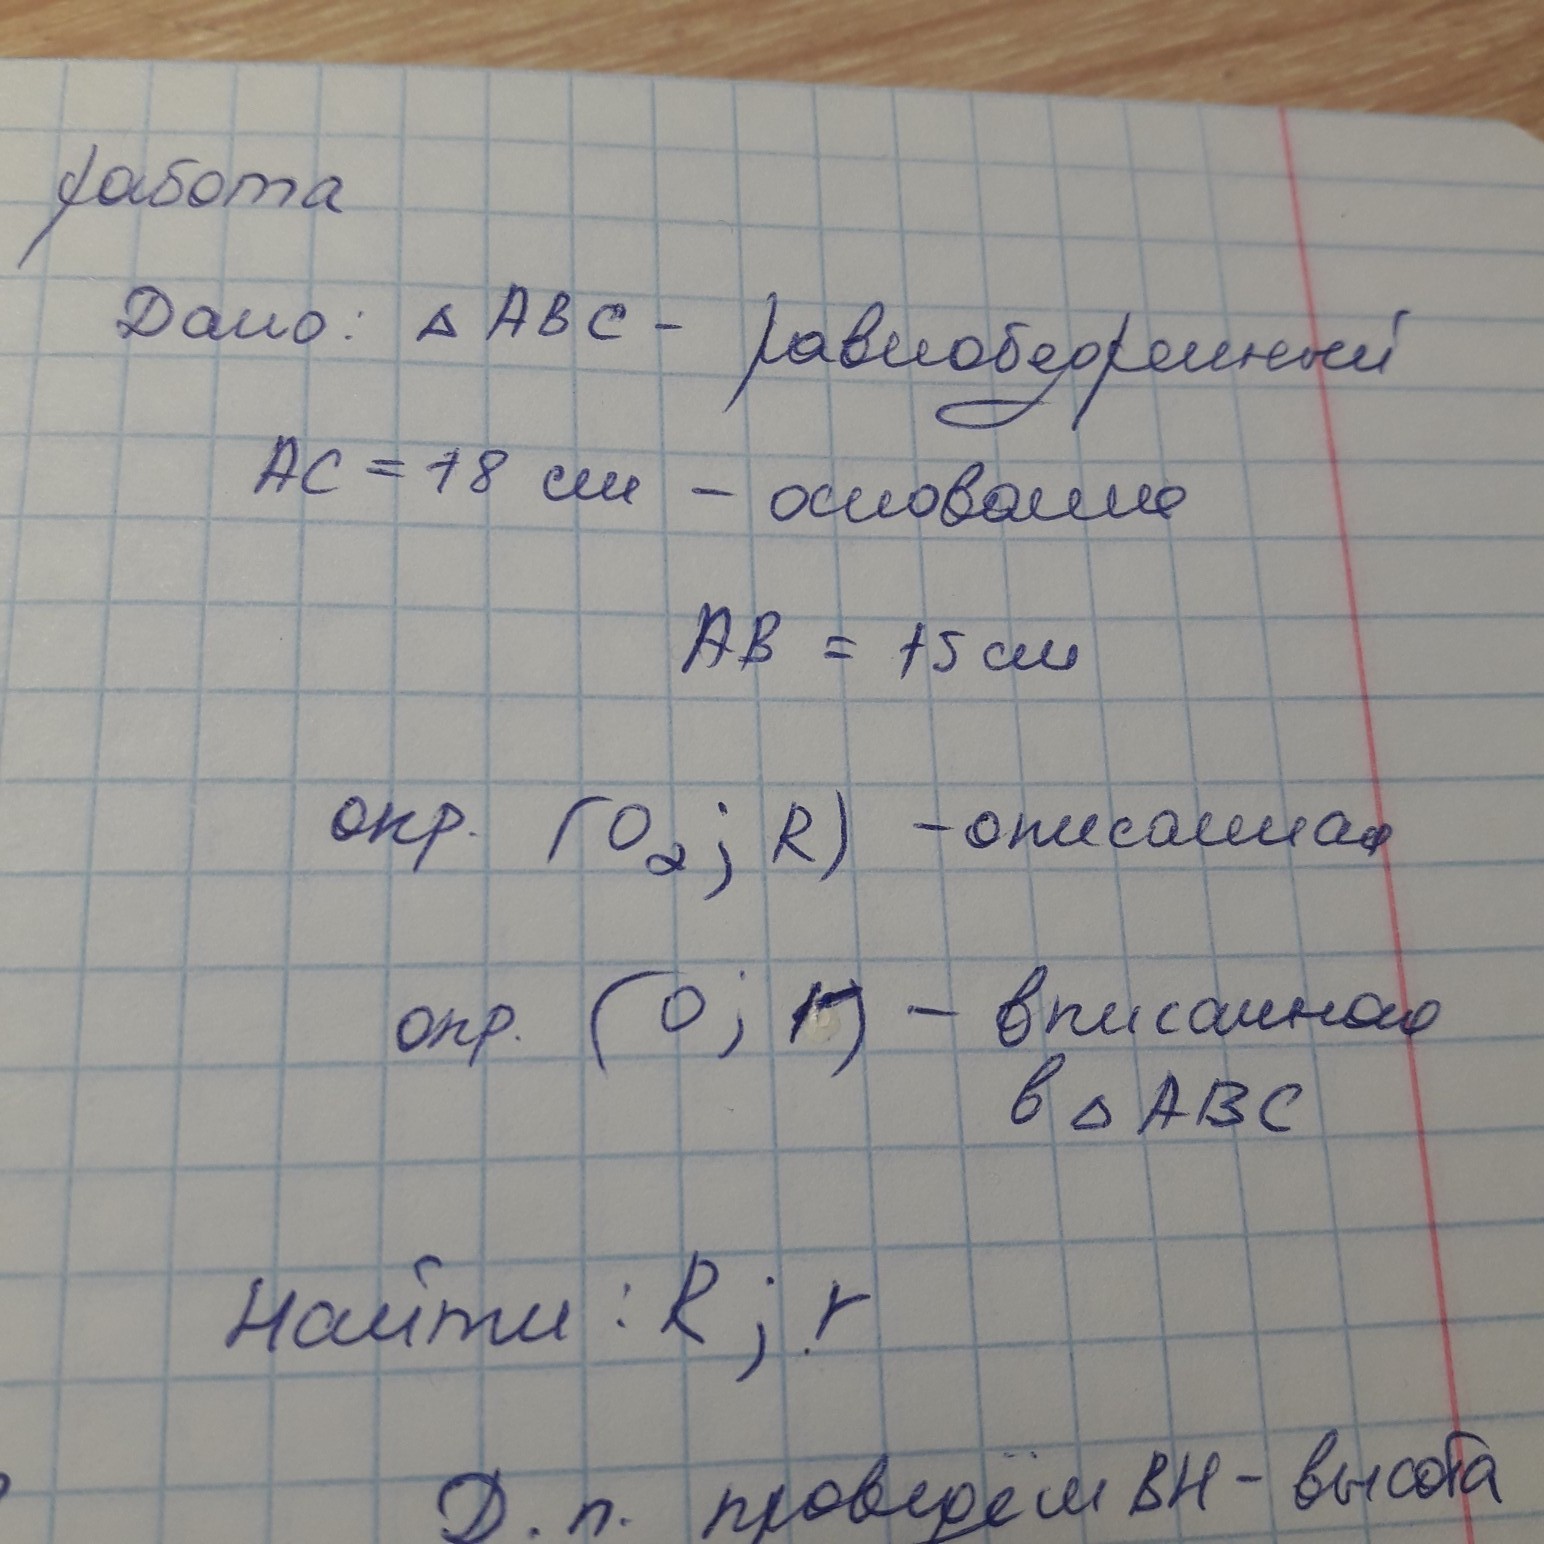 работа
Дано: △ ABC - равнобедренный
AC = 18 см - основание
AB = 15 см
окр. (O₂; R) - описанная
окр. (O; r) - вписанная
в △ ABC
Найти: R; r
Д. п. проведём BH - высота